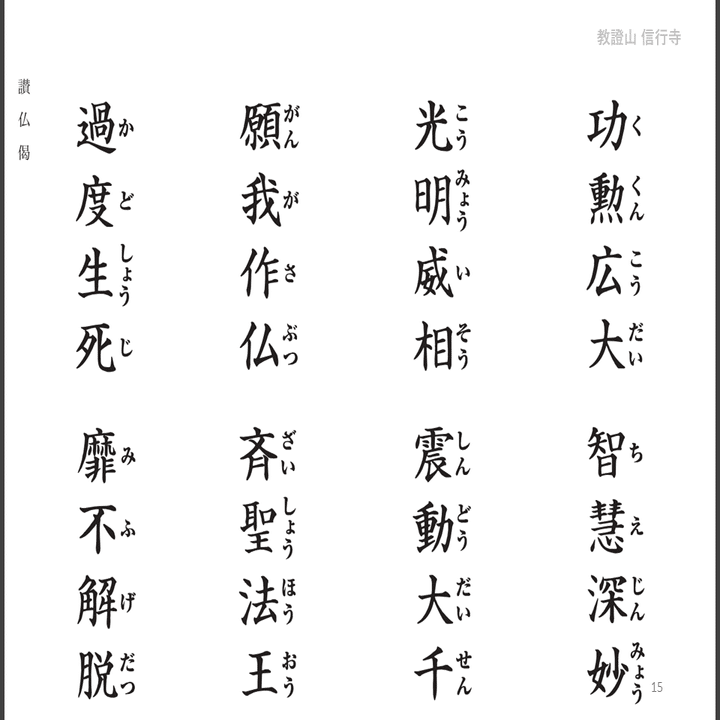 教證山 信行寺
功勲広大 智慧深妙
くくんこうだい ちえじんみょう
光明威相 震動大千
こうみょういそう しんどうだいせん
願我作仏 斉聖法王
がんがさぶつ ざいしょうほうおう
過度生死 靡不解脱
かどしょうじ みふげだつ
讃仏偈
15